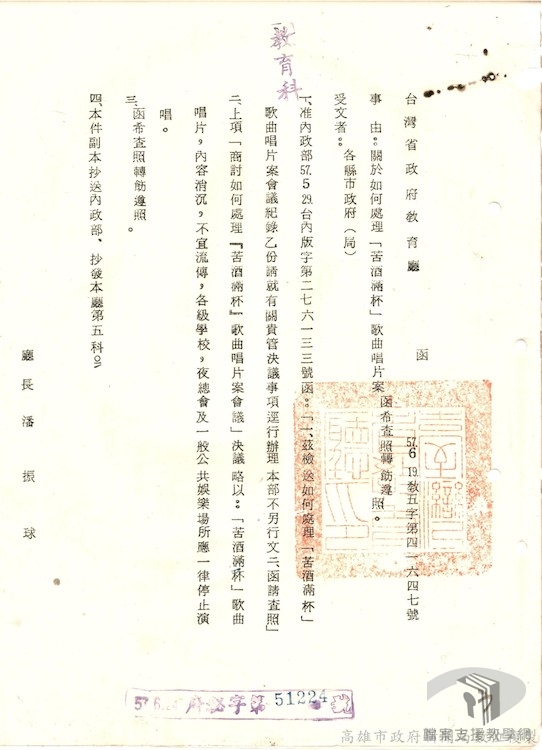 教育科
台灣省政府教育廳　函
57. 6 19.教五字第四一六四七號
事　由：關於如何處理「苦酒滿杯」歌曲唱片案函希查照轉飭遵照。
受文者：各縣市政府（局）
一、准內政部57. 5 29.台內版字第二七六一三三號函：「一、茲檢送如何處理「苦酒滿杯」
歌曲唱片案會議紀錄乙份請就有關貴管決議事項逕行辦理本部不另行文二、函請查照」
二、上項「商討如何處理『苦酒滿杯』歌曲唱片案會議」決議略以：「苦酒滿杯」歌曲
唱片，內容消沉，不宜流傳，各級學校，夜總會及一般公共娛樂場所應一律停止演
唱。
三、函希查照轉飭遵照。
四、本件副本抄送內政部、抄發本廳第五科。
廳長潘振球
57. 6.
字第 51224 號
檔案支援教學網
高雄市政府